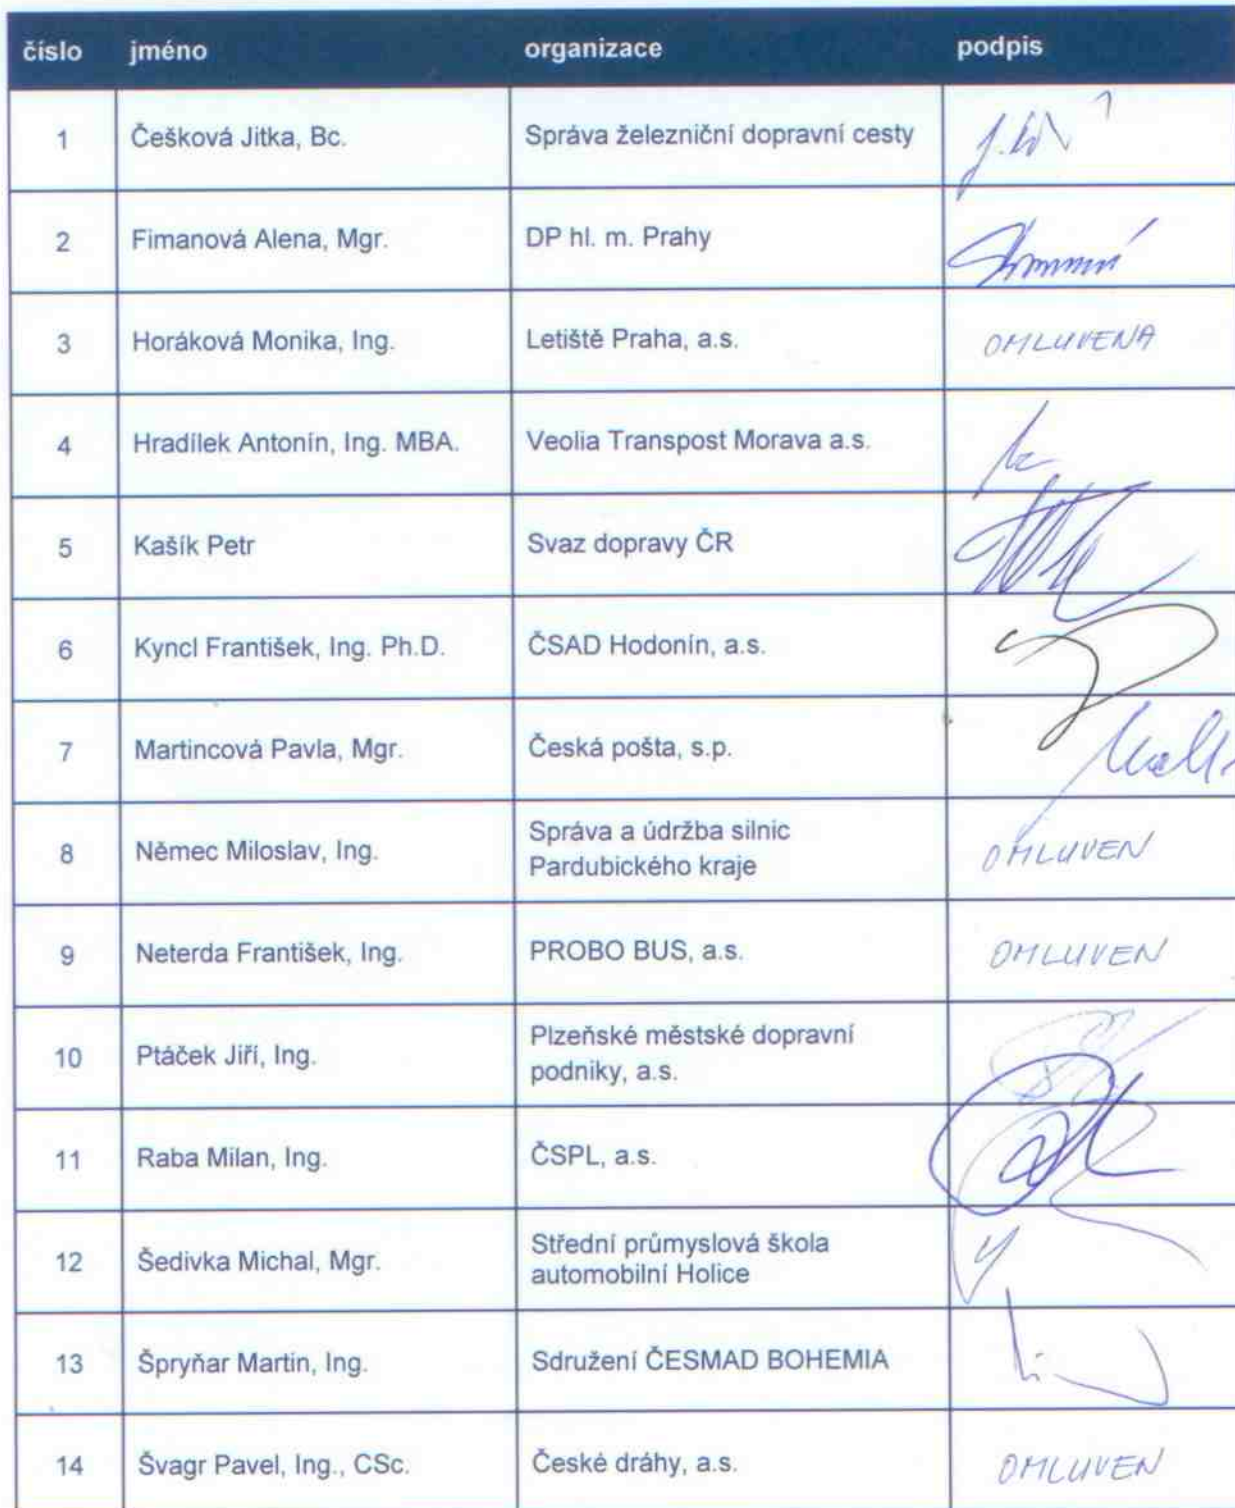 číslo jméno organizace podpis
1 Češková Jitka, Bc. Správa železniční dopravní cesty
2 Fimanová Alena, Mgr. DP hl. m. Prahy
3 Horáková Monika, Ing. Letiště Praha, a.s. OMLUVENA
4 Hradílek Antonín, Ing. MBA. Veolia Transpost Morava a.s.
5 Kašík Petr Svaz dopravy ČR
6 Kyncl František, Ing. Ph.D. ČSAD Hodonín, a.s.
7 Martincová Pavla, Mgr. Česká pošta, s.p.
8 Němec Miloslav, Ing. Správa a údržba silnic
Pardubického kraje OMLUVEN
9 Neterda František, Ing. PROBO BUS, a.s. OMLUVEN
10 Ptáček Jiří, Ing. Plzeňské městské dopravní
podniky, a.s.
11 Raba Milan, Ing. ČSPL, a.s.
12 Šedivka Michal, Mgr. Střední průmyslová škola
automobilní Holice
13 Špryňar Martin, Ing. Sdružení ČESMAD BOHEMIA
14 Švagr Pavel, Ing., CSc. České dráhy, a.s. OMLUVEN